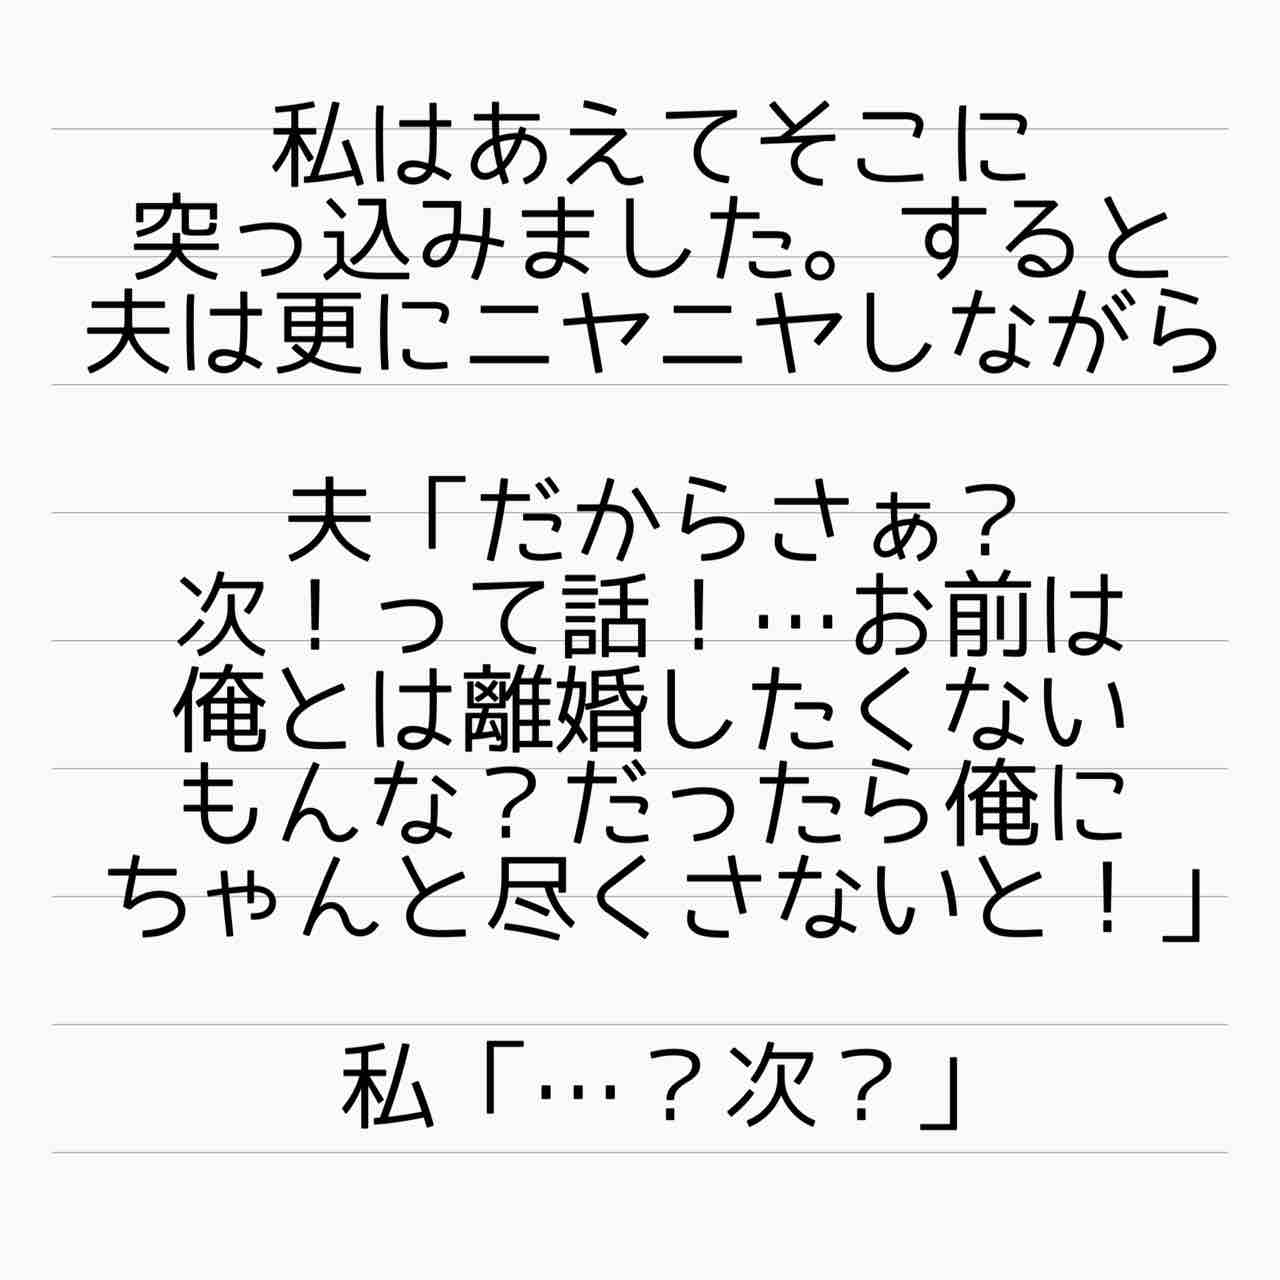 私はあえてそこに
突っ込みました。すると
夫は更にニヤニヤしながら
夫「だからさぁ？
次！って話！…お前は
俺とは離婚したくない
もんな？だったら俺に
ちゃんと尽くさないと！」
私「…？次？」